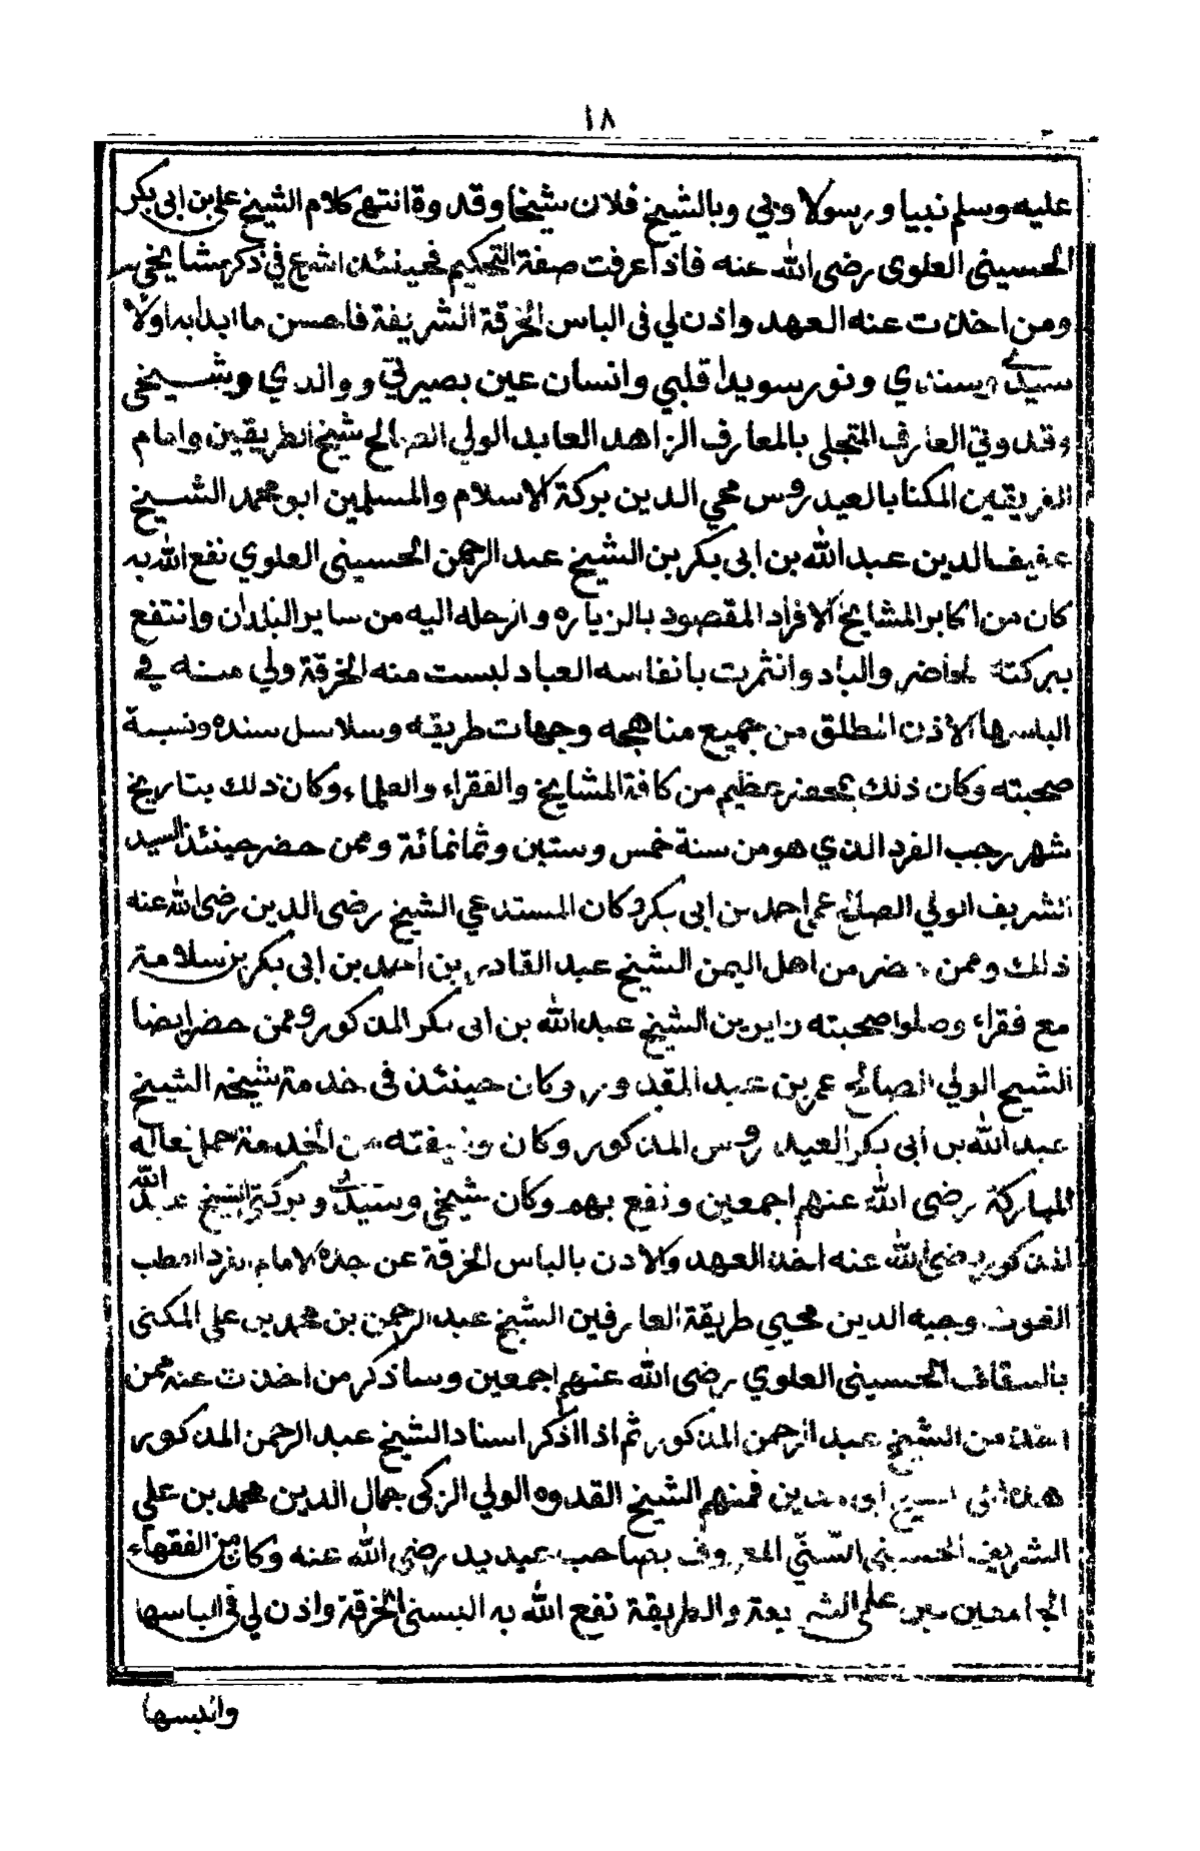 ١٨
عليه وسلم نبيا ورسولا وبي وبالشيخ فلان شيخا وقدوة انتهى كلام الشيخ علي بن ابى بكر
الحسينى العلوى رضى الله عنه فاذا عرفت صفة التحكيم فحينئذ اشرع في ذكر مشايخى
ومن اخذت عنه العهد واذن لي فى الباس الخرقة الشريفة فاحسن ما ابدا به اولا
سيدي وسندي ونور سويدا قلبي وانسان عين بصيرتي ووالدي وشيخى
وقدوتي العارف المتجلى بالمعارف الزاهد العابد الولي الصالح شيخ الطريقين وامام
الفريقين المكنا بالعيدروس محي الدين بركة الاسلام والمسلمين ابو محمد الشيخ
عفيف الدين عبد الله بن ابى بكر بن الشيخ عبد الرحمن الحسينى العلوي نفع الله به
كان من اكابر المشايخ الافراد المقصود بالزياره والرحله اليه من ساير البلدان وانتفع
ببركته الحاضر والباد وانثرت بانفاسه العباد لبست منه الخرقة ولي منه في
الباسها الاذن المطلق من جميع مناهجه وجهات طريقه وسلاسل سنده ونسبة
صحبته وكان ذلك بمحضر عظيم من كافة المشايخ والفقراء والعلماء وكان ذلك بتاريخ
شهر رجب الفرد الذي هو من سنة خمس وستين وثمانمائة وممن حضر حينئذ السيد
الشريف الولي الصالح عمى احمد بن ابى بكر وكان المستدعي الشيخ رضى الدين رضى الله عنه
ذلك وممن حضر من اهل اليمن الشيخ عبد القادر بن احمد بن ابى بكر بن سلامة
مع فقراء وصلوا صحبته زايرين الشيخ عبد الله بن ابى بكر المذكور وممن حضر ايضا
الشيخ الولي الصالح عمر بن عبد المقدور وكان حينئذ فى خدمة شيخه الشيخ
عبد الله بن أبى بكر العيدروس المذكور وكان وظيفته من الخدمة حمل نعاله
المباركة رضى الله عنهم اجمعين ونفع بهم وكان شيخى وسيدى وبركتى الشيخ عبد الله
المذكور رضى الله عنه اخذ العهد والاذن بالباس الخرقة عن جده الامام الفرد القطب
الغوث وجيه الدين محيي طريقة العارفين الشيخ عبد الرحمن بن محمد بن علي المكنى
بالسقاف الحسينى العلوي رضى الله عنهم اجمعين وساذكر من اخذت عنه ممن
اخذ من الشيخ عبد الرحمن المذكور ثم اذا اذكر اسناد الشيخ عبد الرحمن المذكور
هذا الى الشيخ ابى مدين فمنهم الشيخ القدوه الولي الزكى جمال الدين محمد بن علي
الشريف الحسيني السّنّي المعروف بصاحب عيديد رضى الله عنه وكان من الفقهاء
الجامعين بين علمى الشريعة والطريقة نفع الله به البسنى الخرقة واذن لي فى الباسها
والبسها